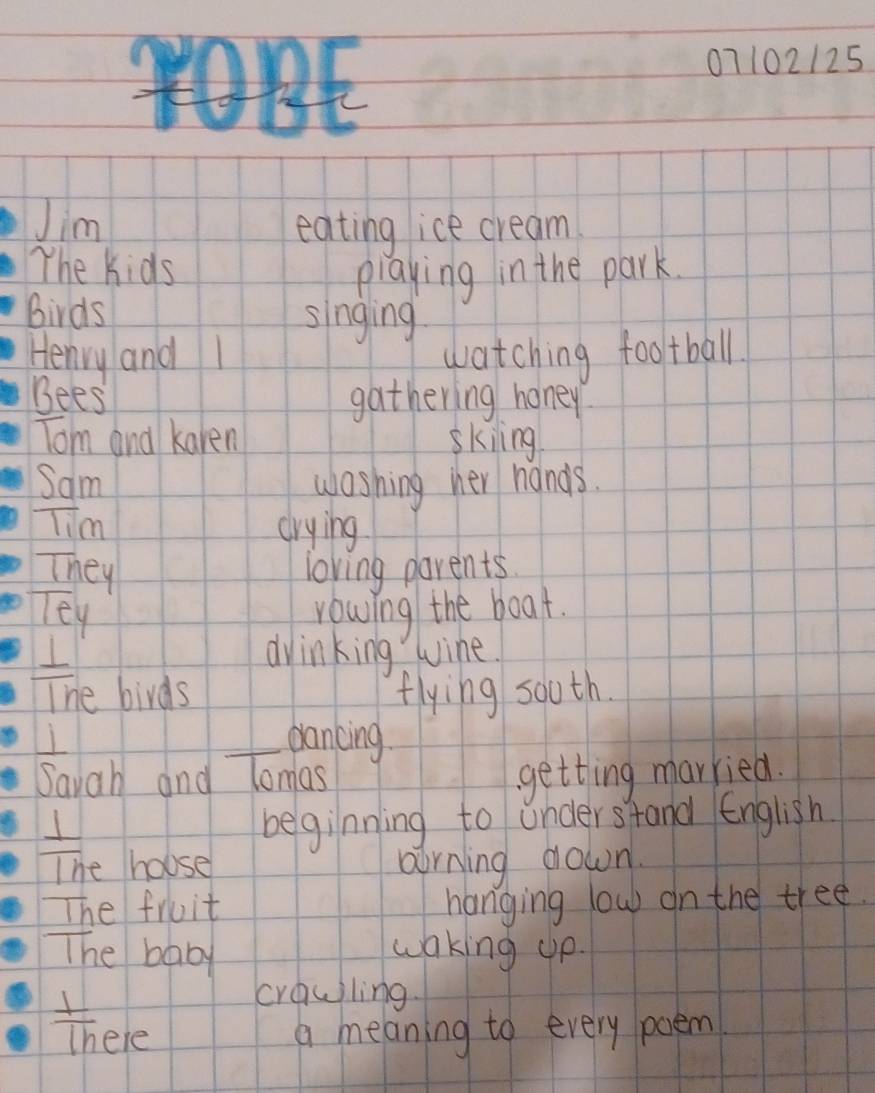 TO BE
07/02/25
Jim eating ice cream.
The kids playing in the park.
Birds singing.
Henry and I watching football.
Bees gathering honey.
Tom and karen skiing.
Sam washing her hands.
Tim crying.
They loving parents.
Tey rowing the boat.
I drinking wine.
The birds flying south.
I __ dancing.
Sarah and Tomas getting married.
I beginning to understand English.
The house burning down.
The fruit hanging low on the tree.
The baby waking up.
I crawling.
There a meaning to every poem.